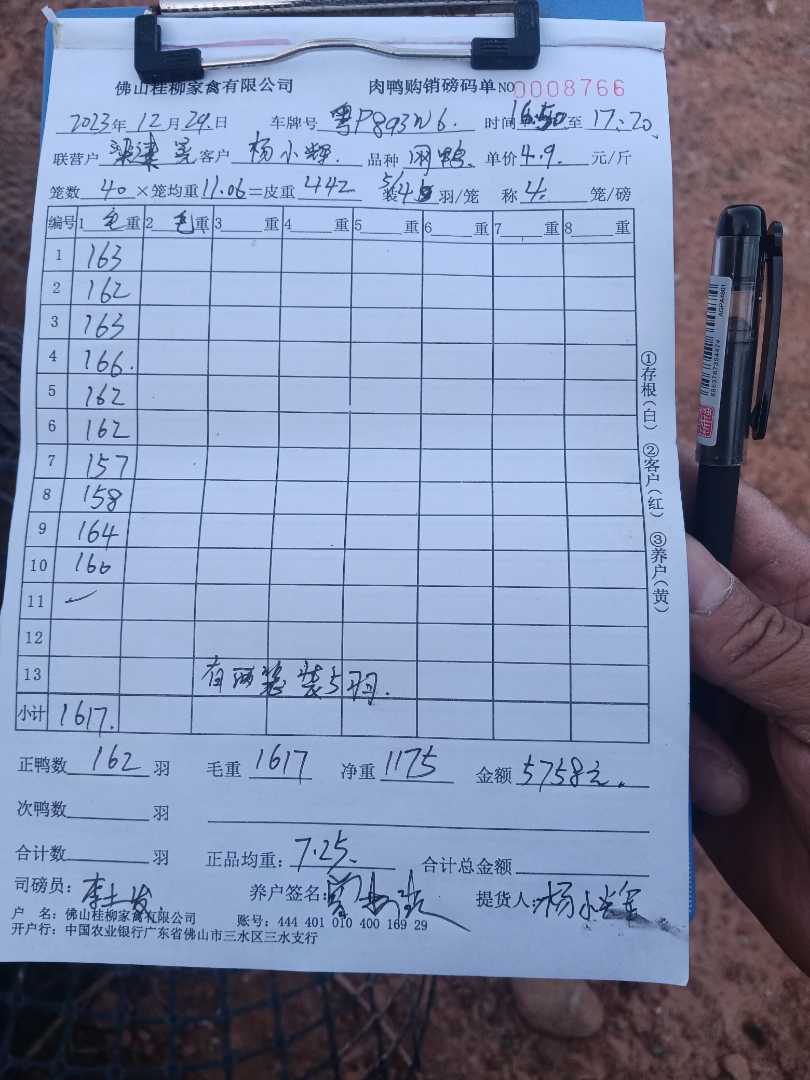 佛山桂柳家禽有限公司 肉鸭购销磅码单 NO 0008766
2023年 12月 29日 车牌号 粤P893W6. 时间 16:50 至 17:20
联营户 客户 杨小辉 品种 鸭 单价 4.9. 元/斤
笼数 40 ×笼均重 11.06 =皮重 442 装 5/4 羽/笼 称 4 笼/磅
编号 1 毛 重 2 毛 重 3 重 4 重 5 重 6 重 7 重 8 重
1 163
2 162
3 163
4 166.
5 162
6 162
7 157
8 158
9 164
10 160
11
12
13 有两笼装5羽.
小计 1617.
正鸭数 162 羽 毛重 1617 净重 1175 金额 5758元.
次鸭数 羽
合计数 羽 正品均重: 7.25 合计总金额
司磅员: 李 养户签名: 提货人: 杨小辉
户 名: 佛山桂柳家禽有限公司 账号: 444 401 010 400 169 29
开户行: 中国农业银行广东省佛山市三水区三水支行
①存根(白) ②客户(红) ③养户(黄)
AGPA4801